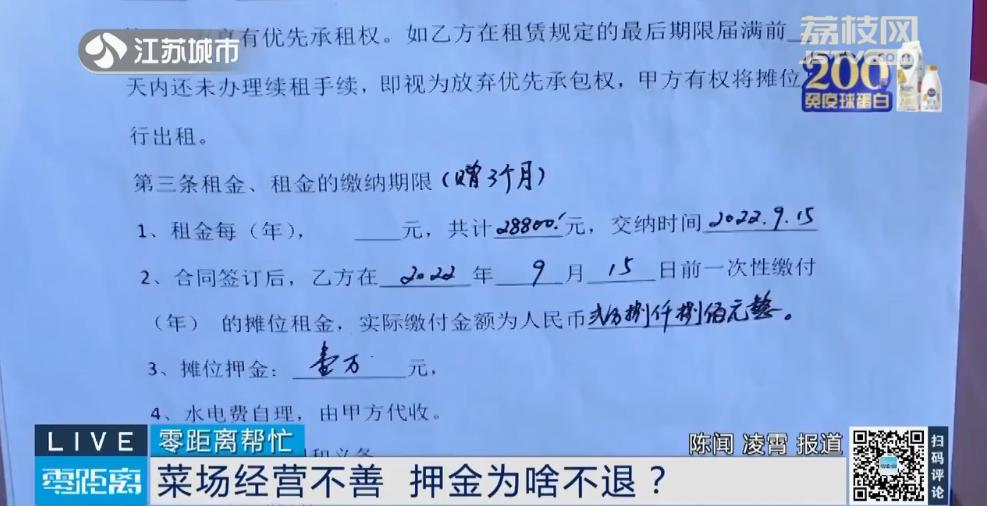 江苏城市
荔枝网
JSTV.com
享有优先承租权。如乙方在租赁规定的最后期限届满前
200
免疫球蛋白
天内还未办理续租手续，即视为放弃优先承包权，甲方有权将摊位
行出租。
第三条租金、租金的缴纳期限（赠3个月）
1、租金每（年），____元，共计28800元，交纳时间2022.9.15
2、合同签订后，乙方在 2022 年 9 月 15 日前一次性缴付
（年） 的摊位租金，实际缴付金额为人民币贰万捌仟捌佰元整。
3、摊位押金：壹万 元，
4、水电费自理，由甲方代收。
和义务
LIVE 零距离帮忙
陈闻 凌霄 报道
零距离
菜场经营不善 押金为啥不退？
扫码评论